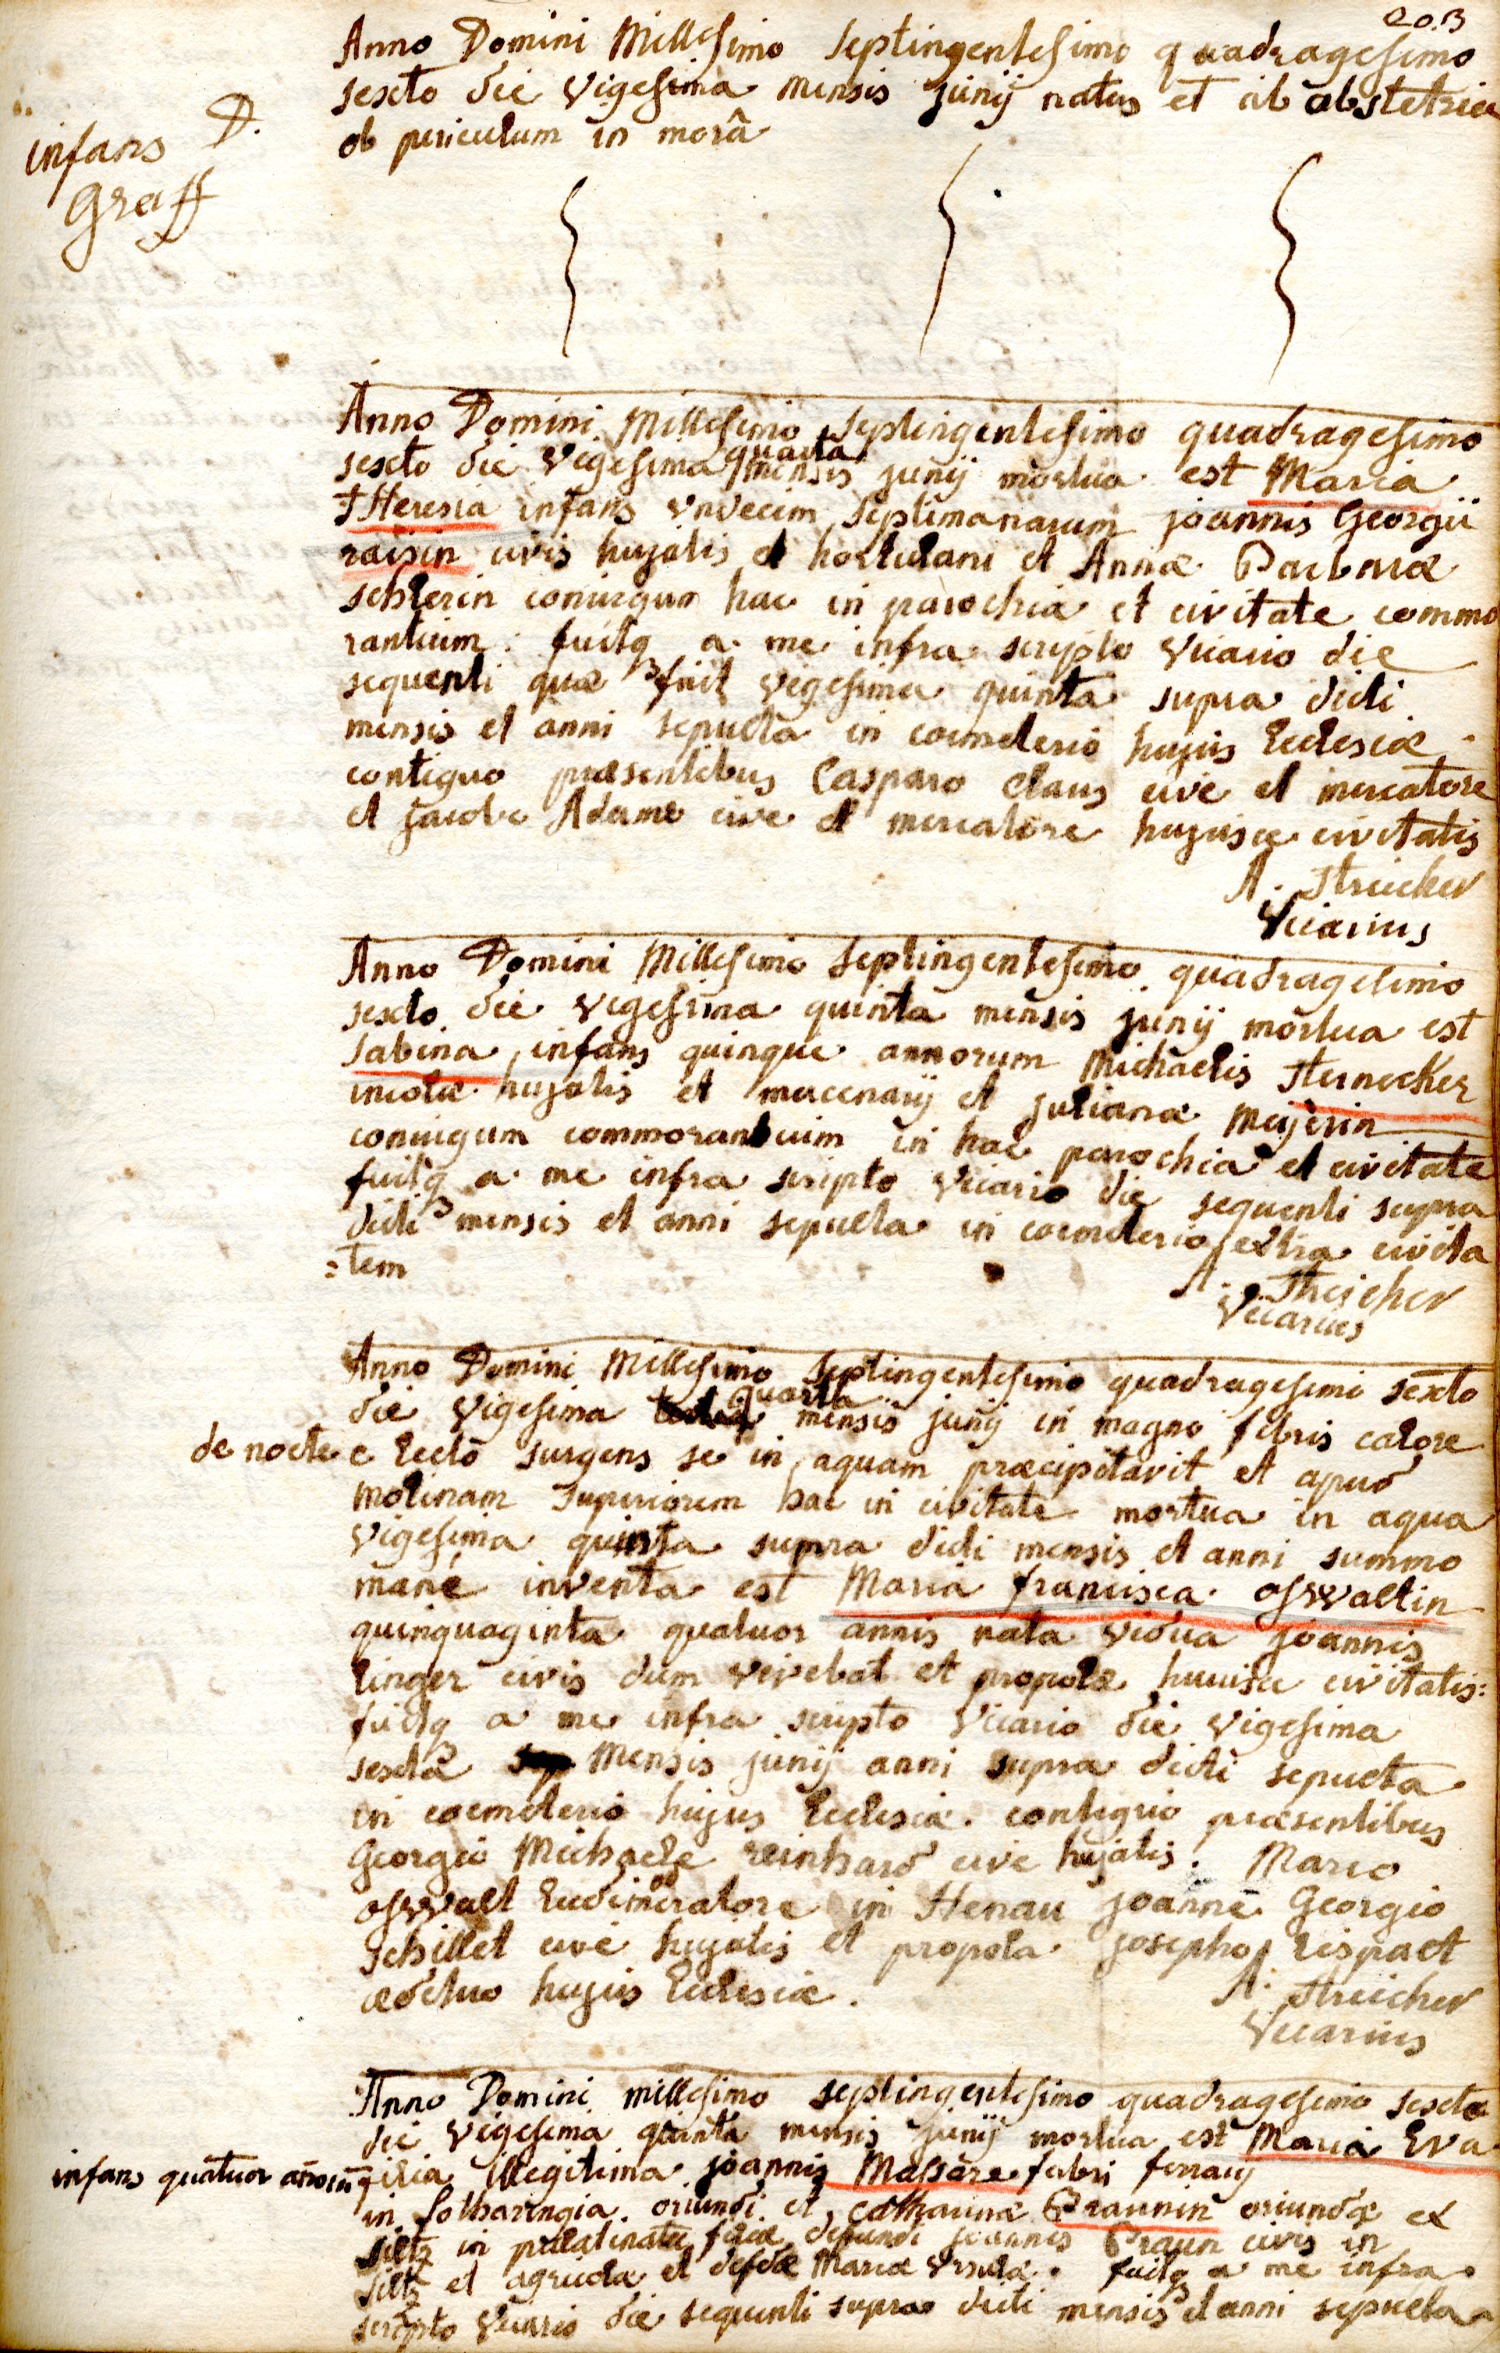 203
Anno Domini Millesimo Septingentesimo quadragesimo
sexto die Vigesima mensis junij natus et ab obstetrice
ob periculum in morâ
infans D.
Graff
Anno Domini Millesimo Septingentesimo quadragesimo
sexto die Vigesima quarta mensis junij mortua est Maria
THeresia infans vndecim Septimanarum joannis Georgii
raisin civis hujatis et hortulani et Annæ Barbaræ
schlerin coniugum hac in parochia et civitate commo
rantium: fuitq a me infra scripto Vicario die
sequenti quæ fuit Vigesima quinta supra dicti
mensis et anni sepulta in coemeterio hujus Ecclesiæ
contiguo præsentibus Casparo Claus cive et mercatore
et Jacobo Adame cive et mercatore hujusce civitatis
A. Streicher
Vicarius
Anno Domini Millesimo Septingentesimo quadragesimo
sexto die Vigesima quinta mensis junij mortua est
Sabina infans quinque annorum Michaelis Sternecker
incolæ hujatis et mercenarij et julianæ Meyerin
coniugum commorantium in hac parochia et civitate
fuitq a me infra scripto Vicario die sequenti supra
dicti mensis et anni sepulta in coemeterio extra civita
=tem
A. Streicher
Vicarius
Anno Domini Millesimo Septingentesimo quadragesimo sexto
die Vigesima quarta mensis junij in magno febris calore
de nocte e lecto surgens se in aquam præcipitavit et apud
molinam Superiorem hac in civitate mortua in aqua
Vigesima quinta supra dicti mensis et anni summo
mane inventa est Maria francisca oswaltin
quinquaginta quatuor annis nata vidua joannis
linger civis dum vivebat et propolæ huiusce civitatis:
fuitq a me infra scripto Vicario die Vigesima
sexta Mensis junij anni supra dicti sepulta
in coemeterio hujus Ecclesiæ contiguo præsentibus
Georgio Michaele reinhard cive hujatis. Marco
oswalt ludimoderatore in Henau joanne Georgio
schillet cive hujatis et propola josepho lispact
ædituo hujus Ecclesiæ.
A. Streicher
Vicarius
Anno Domini millesimo septingentesimo quadragesimo sexto
die Vigesima quinta mensis junij mortua est Maria Eva
infans quatuor annorum filia illegitima joannis Massare fabri ferrarij
in Lotharingia oriundi et Catharinæ Braunin oriundæ ex
Siltz in palatinatu filiæ defuncti joannis Braun civis in
Siltz et agricolæ et defctæ Mariæ Vrsulæ. fuitq a me infra
scripto Vicario die sequenti supra dicti mensis et anni sepulta